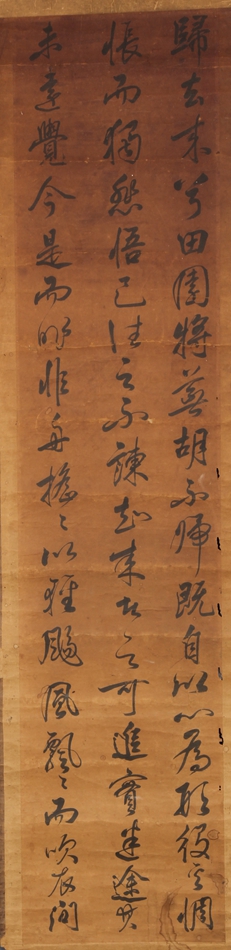 歸去来兮田園將蕪胡不歸既自以心為形役奚惆
悵而獨愁悟已往之不諫知来者之可追實迷途其
未遠覺今是而昨非舟搖〻以輕颺風飄〻而吹衣問